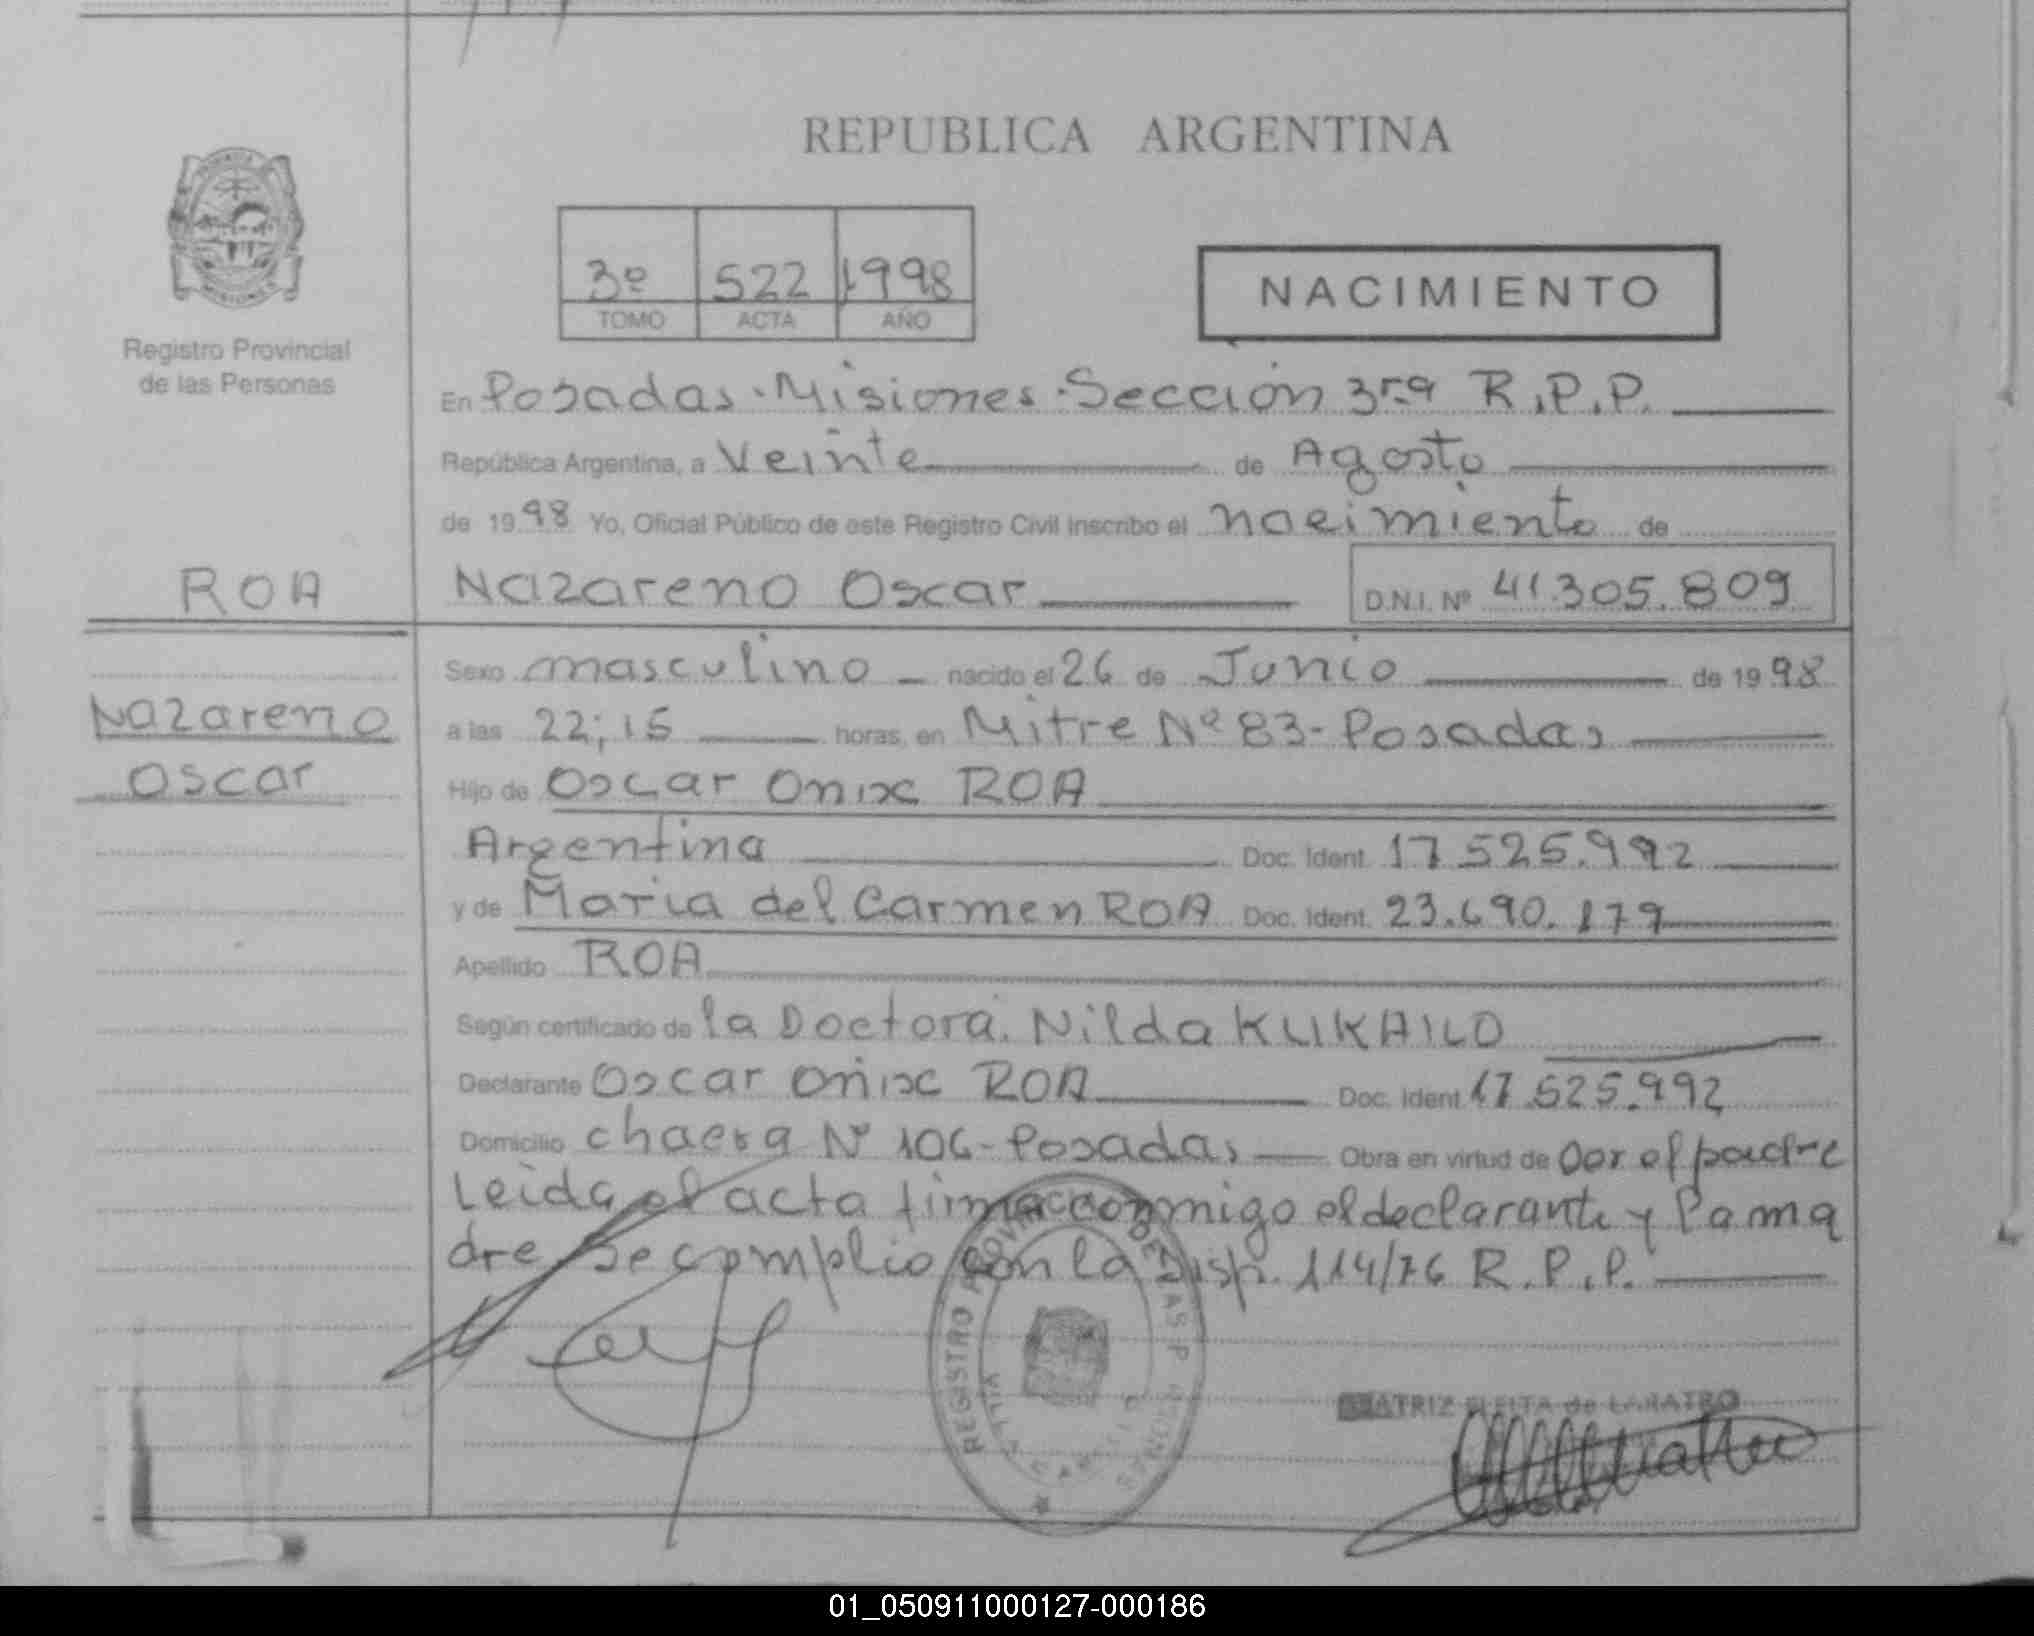 REPUBLICA ARGENTINA
3º 522 1998
TOMO ACTA AÑO
NACIMIENTO
Registro Provincial
de las Personas
En Posadas - Misiones - Sección 3ra R.P.P.
República Argentina, a Veinte de Agosto
de 1998 Yo, Oficial Público de este Registro Civil inscribo el nacimiento de
ROA
Nazareno Oscar D.N.I. Nº 41.305.809
Nazareno
Oscar
Sexo masculino nacido el 26 de Junio de 1998
a las 22;15 horas, en Mitre Nº 83 - Posadas
Hijo de Oscar Onix ROA
Argentina Doc. Ident. 17.525.992
y de Maria del Carmen ROA Doc. Ident. 23.690.179
Apellido ROA
Según certificado de la Doctora. Nilda KUKAILO
Declarante Oscar Onix ROA Doc. Ident. 17.525.992
Domicilio chacra Nº 106 - Posadas Obra en virtud de Oor el padre
Leida el acta firma conmigo el declarante y la ma
dre Se complio con la Disp. 114/76 R.P.P.
REGISTRO PROVINCIAL DE LAS PERSONAS
BEATRIZ FLEITA de LARATRO
01_050911000127-000186